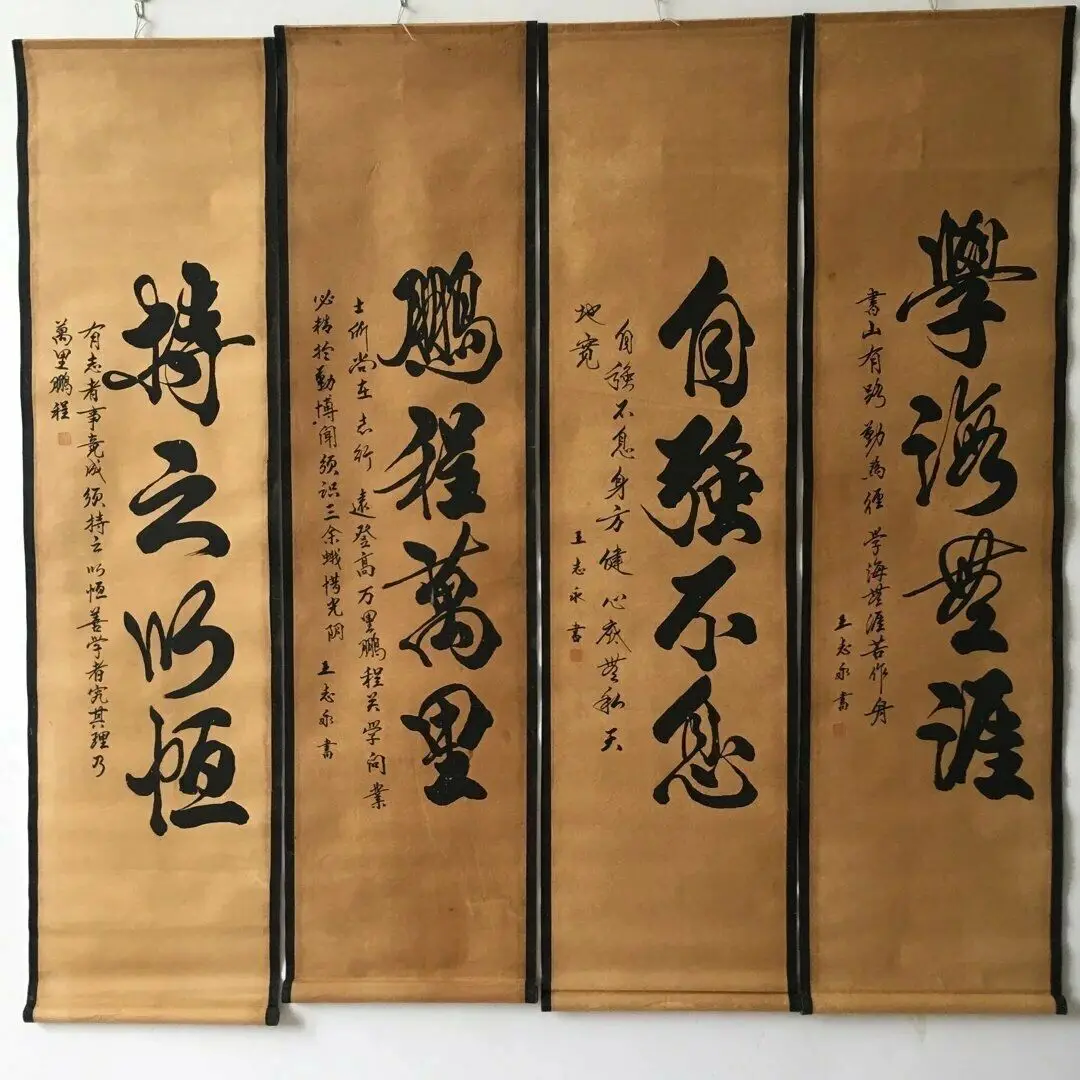 學海無涯
書山有路勤為徑 学海無涯苦作舟
王志永書
自強不息
自强不息身方健心底無私天
地宽
王志永書
鵬程萬里
士所尚在志行遠登高万里鵬程关学问業
必精於勤博闻须识三余蛾惜光阴
王志永書
持之以恒
有志者事竟成须持之以恒善学者究其理乃
萬里鵬程